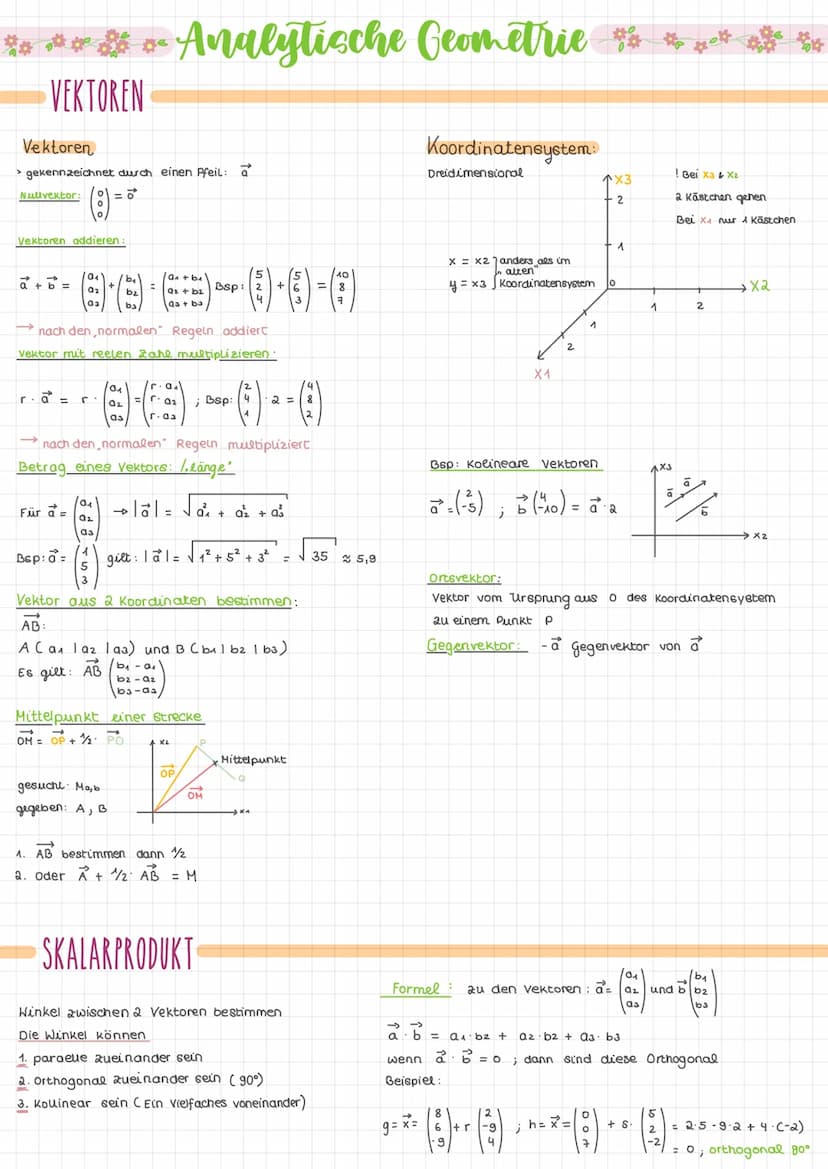 Analytische Geometrie
VEKTOREN
Vektoren
> gekennzeichnet durch einen Pfeil: a⃗
Nullvektor: (0 0 0) = o⃗
Vektoren addieren:
a⃗ + b⃗ = (a1 a2 a3) + (b1 b2 b3) = (a1 + b1 a2 + b2 a3 + b3) Bsp: (5 2 4) + (5 6 3) = (10 8 7)
→ nach den „normalen" Regeln addiert
Vektor mit reelen Zahl multiplizieren:
r · a⃗ = r · (a1 a2 a3) = (r · a1 r · a2 r · a3) ; Bsp: (2 4 1) · 2 = (4 8 2)
→ nach den „normalen" Regeln multipliziert
Betrag eines Vektors: /„länge"
Für a⃗ = (a1 a2 a3) → |a⃗| = √a1² + a2² + a3²
Bsp: a⃗ = (1 5 3) gilt: |a⃗| = √1² + 5² + 3² = √35 ≈ 5,9
Vektor aus 2 Koordinaten bestimmen:
AB⃗:
A (a1 | a2 | a3) und B (b1 | b2 | b3)
Es gilt: AB⃗ (b1 - a1 b2 - a2 b3 - a3)
Mittelpunkt einer Strecke
OM⃗ = OP⃗ + 1/2 · PQ⃗
gesucht: Ma,b
gegeben: A, B
x2
P
Mittelpunkt
OP⃗
Q
OM⃗
x1
1. AB⃗ bestimmen dann 1/2
2. oder A⃗ + 1/2 · AB⃗ = M
Koordinatensystem:
Dreidimensional
x = x2 anders als im
„alten"
y = x3 Koordinatensystem
X3
2
1
0
1
2
X2
1
2
X1
! Bei X3 & X2
2 Kästchen gehen
Bei X1 nur 1 Kästchen
Bsp: Kolineare Vektoren
a⃗ = (2 -5) ; b⃗ (4 -10) = a⃗ · 2
X3
a⃗
a⃗
b⃗
X2
Ortsvektor:
Vektor vom Ursprung aus 0 des Koordinatensystem
zu einem Punkt P
Gegenvektor: -a⃗ Gegenvektor von a⃗
SKALARPRODUKT
Winkel zwischen 2 Vektoren bestimmen
Die Winkel können
1. paralle zueinander sein
2. Orthogonal zueinander sein (90°)
3. Kollinear sein (Ein Vielfaches voneinander)
Formel: zu den Vektoren: a⃗ = (a1 a2 a3) und b⃗ (b1 b2 b3)
a⃗ · b⃗ = a1 · b2 + a2 · b2 + a3 · b3
wenn a⃗ · b⃗ = 0 ; dann sind diese Orthogonal
Beispiel:
g = x⃗ = (8 6 -9) + r (2 -9 4) ; h = x⃗ = (0 0 7) + s · (5 2 -2) = 2·5 - 9·2 + 4·(-2)
= 0 , orthogonal 90°